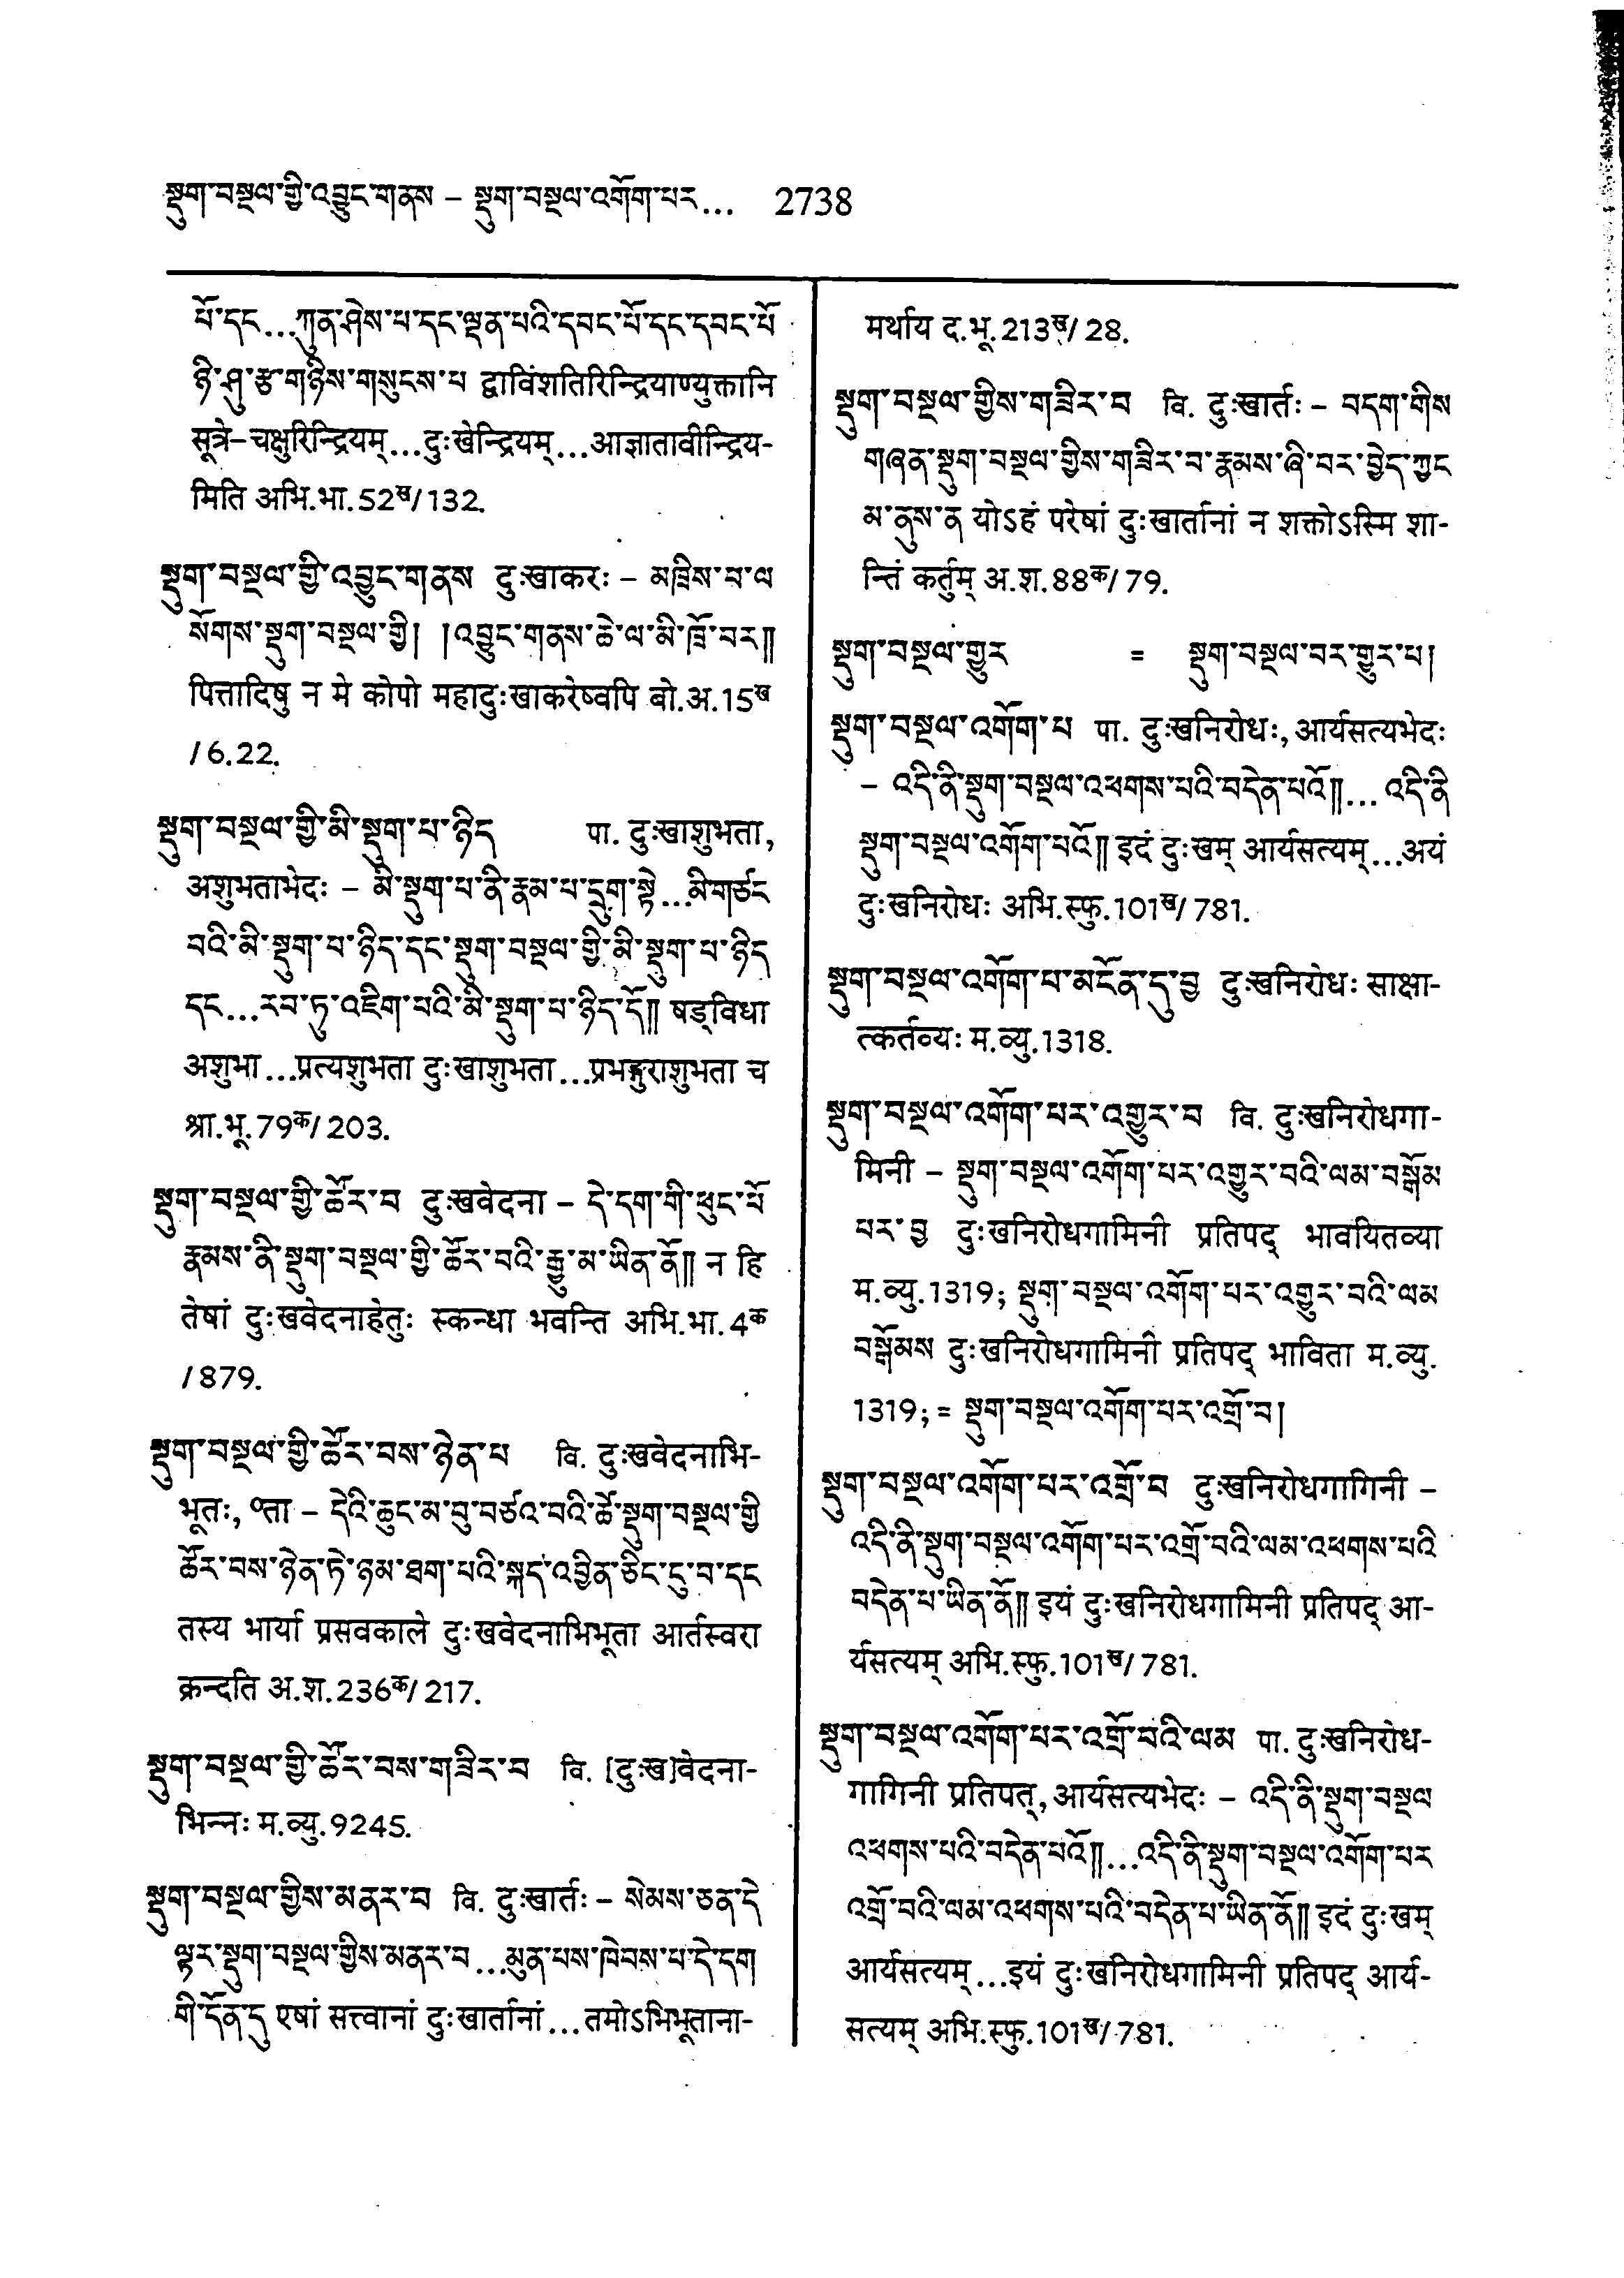 སྡུག་བསྔལ་གྱི་འབྱུང་གནས – སྡུག་བསྔལ་འགོག་པར... 2738
པོ་དང...ཀུན་ཤེས་པ་དང་ལྡན་པའི་དབང་པོ་དང་དབང་པོ
ཉི་ཤུ་རྩ་གཉིས་གསུངས་པ द्वाविंशतिरिन्द्रियाण्युक्तानि
सूत्रे–चक्षुरिन्द्रियम्...दुःखेन्द्रियम्...आज्ञातावीन्द्रिय-
मिति अभि.भा.52ख/132.
སྡུག་བསྔལ་གྱི་འབྱུང་གནས दुःखाकरः – མཁྲིས་པ་ལ
སོགས་སྡུག་བསྔལ་གྱི། །འབྱུང་གནས་ཆེ་ལ་མི་ཁྲོ་བར༎
पित्तादिषु न मे कोपो महादुःखाकरेष्वपि बो.अ.15ख
/6.22.
སྡུག་བསྔལ་གྱི་མི་སྡུག་པ་ཉིད पा. दुःखाशुभता,
अशुभताभेदः – མི་སྡུག་པ་ནི་རྣམ་པ་དྲུག་སྟེ...མི་གཙང
བའི་མི་སྡུག་པ་ཉིད་དང་སྡུག་བསྔལ་གྱི་མི་སྡུག་པ་ཉིད
དང...རབ་ཏུ་འཇིག་པའི་མི་སྡུག་པ་ཉིད་དོ༎ षड्विधा
अशुभा...प्रत्यशुभता दुःखाशुभता...प्रभङ्गुराशुभता च
श्रा.भू.79क/203.
སྡུག་བསྔལ་གྱི་ཚོར་བ दुःखवेदना – དེ་དག་གི་ཕུང་པོ
རྣམས་ནི་སྡུག་བསྔལ་གྱི་ཚོར་བའི་རྒྱུ་མ་ཡིན་ནོ༎ न हि
तेषां दुःखवेदनाहेतुः स्कन्धा भवन्ति अभि.भा.4क
/879.
སྡུག་བསྔལ་གྱི་ཚོར་བས་ཉེན་པ वि. दुःखवेदनाभि-
भूतः, ॰ता – དེའི་ཆུང་མ་བུ་བཙའ་བའི་ཚེ་སྡུག་བསྔལ་གྱི
ཚོར་བས་ཉེན་ཏེ་ཉམ་ཐག་པའི་སྐད་འབྱིན་ཅིང་ངུ་བ་དང
तस्य भार्या प्रसवकाले दुःखवेदनाभिभूता आर्तस्वरा
क्रन्दति अ.श.236क/217.
སྡུག་བསྔལ་གྱི་ཚོར་བས་གཟིར་བ वि. [दुःख]वेदना-
भिन्नः म.व्यु.9245.
སྡུག་བསྔལ་གྱིས་མནར་བ वि. दुःखार्तः – སེམས་ཅན་དེ
ལྟར་སྡུག་བསྔལ་གྱིས་མནར་བ...མུན་པས་ཁེབས་པ་དེ་དག
གི་དོན་དུ एषां सत्त्वानां दुःखार्तानां...तमोऽभिभूताना-
मर्थाय द.भू.213ख/28.
སྡུག་བསྔལ་གྱིས་གཟིར་བ वि. दुःखार्तः – བདག་གིས
གཞན་སྡུག་བསྔལ་གྱིས་གཟིར་བ་རྣམས་ཞི་བར་བྱེད་ཀྱང
མ་ནུས་ན योऽहं परेषां दुःखार्तानां न शक्तोऽस्मि शा-
न्तिं कर्तुम् अ.श.88क/79.
སྡུག་བསྔལ་གྱུར = སྡུག་བསྔལ་བར་གྱུར་པ།
སྡུག་བསྔལ་འགོག་པ पा. दुःखनिरोधः, आर्यसत्यभेदः
– འདི་ནི་སྡུག་བསྔལ་འཕགས་པའི་བདེན་པའོ༎... འདི་ནི
སྡུག་བསྔལ་འགོག་པའོ༎ इदं दुःखम् आर्यसत्यम्...अयं
दुःखनिरोधः अभि.स्फु.101ख/781.
སྡུག་བསྔལ་འགོག་པ་མངོན་དུ་བྱ दुःखनिरोधः साक्षा-
त्कर्तव्यः म.व्यु.1318.
སྡུག་བསྔལ་འགོག་པར་འགྱུར་བ वि. दुःखनिरोधगा-
मिनी – སྡུག་བསྔལ་འགོག་པར་འགྱུར་བའི་ལམ་བསྒོམ
པར་བྱ दुःखनिरोधगामिनी प्रतिपद् भावयितव्या
म.व्यु.1319; སྡུག་བསྔལ་འགོག་པར་འགྱུར་བའི་ལམ
བསྒོམས दुःखनिरोधगामिनी प्रतिपद् भाविता म.व्यु.
1319; = སྡུག་བསྔལ་འགོག་པར་འགྲོ་བ།
སྡུག་བསྔལ་འགོག་པར་འགྲོ་བ दुःखनिरोधगागिनी –
འདི་ནི་སྡུག་བསྔལ་འགོག་པར་འགྲོ་བའི་ལམ་འཕགས་པའི
བདེན་པ་ཡིན་ནོ༎ इयं दुःखनिरोधगामिनी प्रतिपद् आ-
र्यसत्यम् अभि.स्फु.101ख/781.
སྡུག་བསྔལ་འགོག་པར་འགྲོ་བའི་ལམ पा. दुःखनिरोध-
गागिनी प्रतिपत्, आर्यसत्यभेदः – འདི་ནི་སྡུག་བསྔལ
འཕགས་པའི་བདེན་པའོ༎...འདི་ནི་སྡུག་བསྔལ་འགོག་པར
འགྲོ་བའི་ལམ་འཕགས་པའི་བདེན་པ་ཡིན་ནོ༎ इदं दुःखम्
आर्यसत्यम्...इयं दुःखनिरोधगामिनी प्रतिपद् आर्य-
सत्यम् अभि.स्फु.101ख/781.